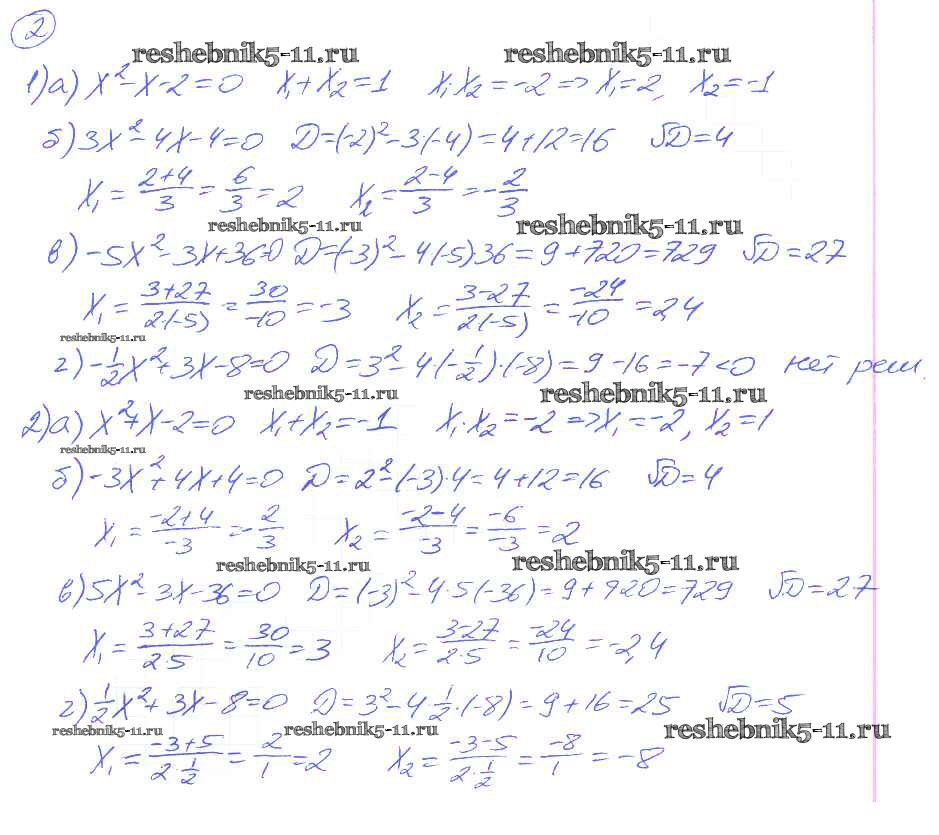 2
reshebnik5-11.ru reshebnik5-11.ru
1) а) x² - x - 2 = 0 x₁ + x₂ = 1 x₁·x₂ = -2 => x₁ = 2, x₂ = -1
б) 3x² - 4x - 4 = 0 D = (-2)² - 3(-4) = 4 + 12 = 16 √D = 4
x₁ = (2+4)/3 = 6/3 = 2 x₂ = (2-4)/3 = -2/3
reshebnik5-11.ru reshebnik5-11.ru
в) -5x² - 3x + 36 = 0 D = (-3)² - 4(-5)36 = 9 + 720 = 729 √D = 27
x₁ = (3+27)/(2(-5)) = 30/-10 = -3 x₂ = (3-27)/(2(-5)) = -24/-10 = 2,4
reshebnik5-11.ru
г) -1/2x² + 3x - 8 = 0 D = 3² - 4(-1/2)·(-8) = 9 - 16 = -7 < 0 нет реш.
reshebnik5-11.ru reshebnik5-11.ru
2) а) x² + x - 2 = 0 x₁ + x₂ = -1 x₁·x₂ = -2 => x₁ = -2, x₂ = 1
reshebnik5-11.ru
б) -3x² + 4x + 4 = 0 D = 2² - (-3)·4 = 4 + 12 = 16 √D = 4
x₁ = (-2+4)/-3 = -2/3 x₂ = (-2-4)/-3 = -6/-3 = 2
reshebnik5-11.ru reshebnik5-11.ru
в) 5x² - 3x - 36 = 0 D = (-3)² - 4·5(-36) = 9 + 720 = 729 √D = 27
x₁ = (3+27)/(2·5) = 30/10 = 3 x₂ = (3-27)/(2·5) = -24/10 = -2,4
г) 1/2x² + 3x - 8 = 0 D = 3² - 4·1/2·(-8) = 9 + 16 = 25 √D = 5
reshebnik5-11.ru reshebnik5-11.ru reshebnik5-11.ru
x₁ = (-3+5)/(2·1/2) = 2/1 = 2 x₂ = (-3-5)/(2·1/2) = -8/1 = -8